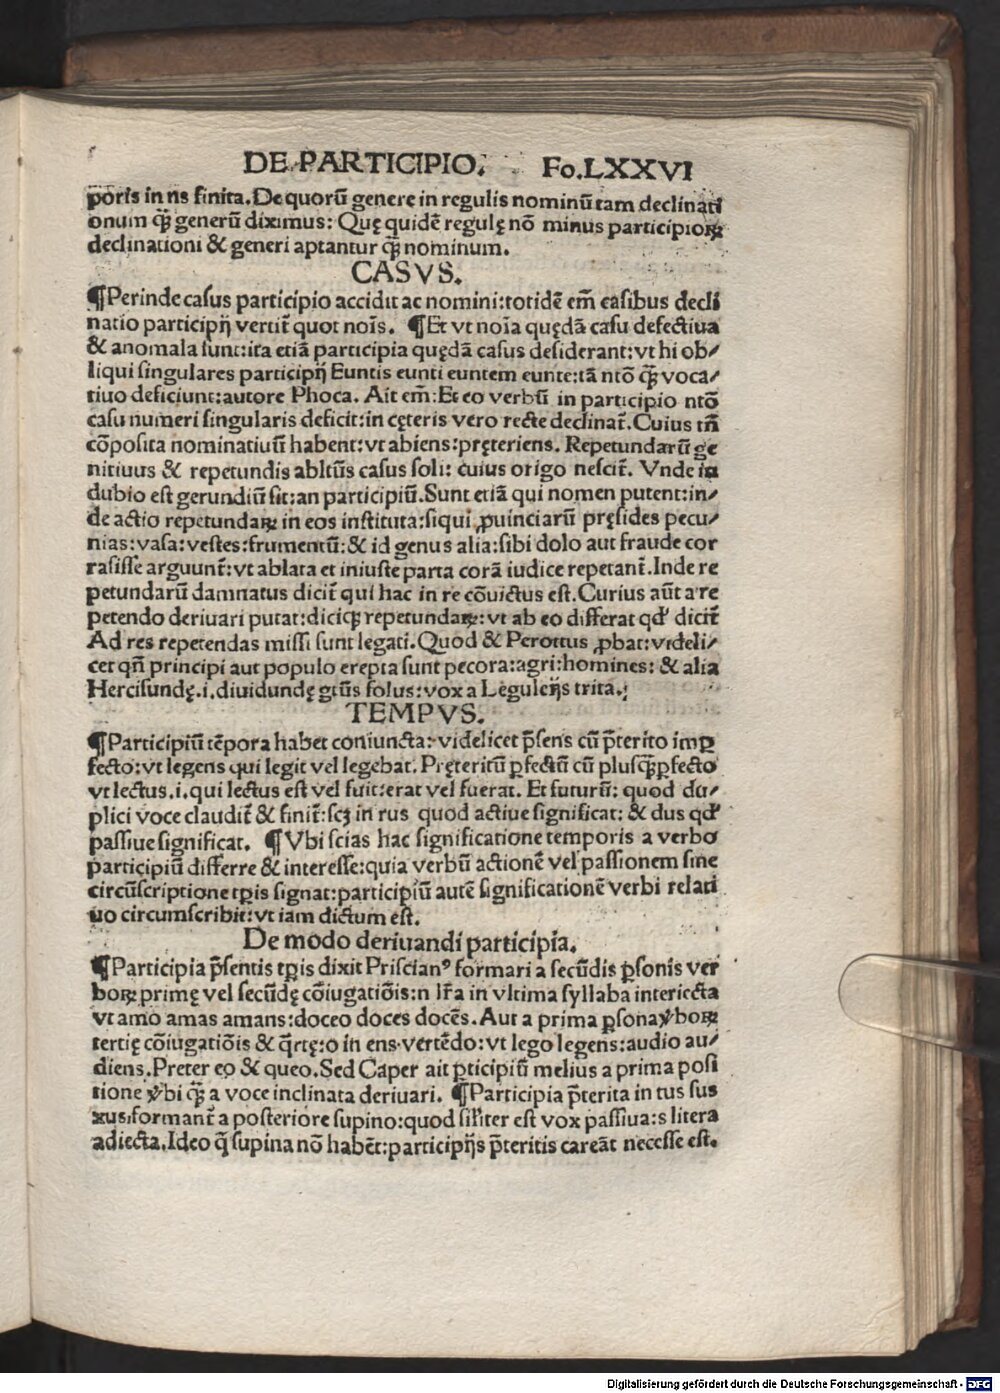 DE PARTICIPIO. Fo.LXXVI
poris in ns finita. De quorũ genere in regulis nominũ tam declinati
onum q̃ʒ generũ diximus: Quę quidẽ regulę nõ minus participioꝝ
declinationi & generi aptantur q̃ʒ nominum.
CASVS.
¶Perinde casus participio accidit ac nomini: totidẽ em̃ casibus decli
natio participij vertit̃ quot noĩs. ¶Et vt noĩa quędã casu defectiua
& anomala sunt: ita etiã participia quędã casus desiderant: vt hi ob⸗
liqui singulares participij Euntis eunti euntem eunte: tã ntõ q̃ʒ voca⸗
tiuo deficiunt: autore Phoca. Ait em̃: Et eo verbũ in participio ntõ
casu numeri singularis deficit: in cęteris vero recte declinat̃. Cuius tñ
cõposita nominatiuũ habent: vt abiens: pręteriens. Repetundarũ ge
nitiuus & repetundis abltũs casus soli: cuius origo nescit̃. Vnde in
dubio est gerundiũ sit: an participiũ. Sunt etiã qui nomen putent: in⸗
de actio repetundaꝝ in eos instituta: siqui ꝓuinciarũ pręsides pecu⸗
nias: vasa: vestes: frumentũ: & id genus alia: sibi dolo aut fraude cor
rasisse arguunt̃: vt ablata et iniuste parta corã iudice repetant̃. Inde re
petundarũ damnatus dicit̃ qui hac in re cõuictus est. Curius aũt a re
petendo deriuari putat: diciqʒ repetundaꝝ: vt ab eo differat qď dicit̃
Ad res repetendas missi sunt legati. Quod & Perottus ꝓbat: videli⸗
cet qñ principi aut populo erepta sunt pecora: agri: homines: & alia
Herciscundę .i. diuidundę gtũs solus: vox a Leguleijs trita.
TEMPVS.
¶Participiũ tẽpora habet coniuncta: videlicet p̃sens cũ p̃terito imꝑ
fecto: vt legens qui legit vel legebat. Pręteritũ ꝑfectũ cũ plusq̃ʒꝑfecto
vt lectus .i. qui lectus est vel fuit: erat vel fuerat. Et futurũ: quod du⸗
plici voce claudit̃ & finit̃: scʒ in rus quod actiue significat: & dus qď
passiue significat. ¶Vbi scias hac significatione temporis a verbo
participiũ differre & interesse: quia verbũ actionẽ vel passionem sine
circũscriptione tꝑis signat: participiũ autẽ significationẽ verbi relati
uo circumscribit: vt iam dictum est.
De modo deriuandi participia.
¶Participia p̃sentis tꝑis dixit Priscianꝰ formari a secũdis ꝑsonis ver
boꝝ primę vel secũdę cõiugatiõis: n lr̃a in vltima syllaba interiecta
vt amo amas amans: doceo doces docẽs. Aut a prima ꝑsona ѷboꝝ
tertię cõiugatiõis & q̃rtę: o in ens vertẽdo: vt lego legens: audio au⸗
diens. Preter eo & queo. Sed Caper ait ꝑticipiũ melius a prima posi
tione ѷbi q̃ʒ a voce inclinata deriuari. ¶Participia p̃terita in tus sus
xus: formant̃ a posteriore supino: quod sil̃iter est vox passiua: s litera
adiecta. Ideo q̃ supina nõ habẽt: participijs p̃teritis careãt necesse est.
Digitalisierung gefördert durch die Deutsche Forschungsgemeinschaft - DFG